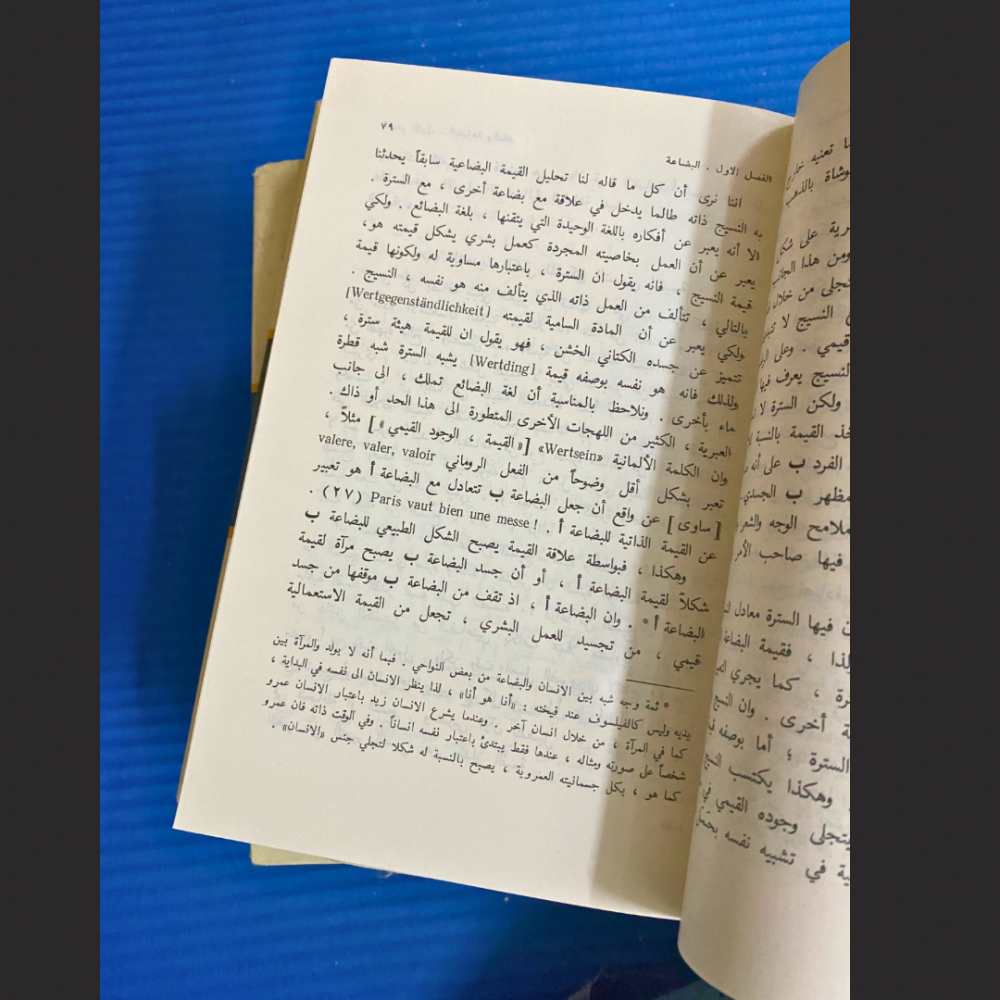 ٧٩
الفصل الاول . البضاعة
اننا نرى أن كل ما قاله لنا تحليل القيمة البضاعية سابقاً يحدثنا
به النسيج ذاته طالما يدخل في علاقة مع بضاعة أخرى ، مع السترة .
الا أنه يعبر عن أفكاره باللغة الوحيدة التي يتقنها ، بلغة البضائع . ولكي
يعبر عن أن العمل بخاصيته المجردة كعمل بشري يشكل قيمته هو،
قيمة النسيج ، فانه يقول ان السترة ، باعتبارها مساوية له ولكونها قيمة
بالتالي ، تتألف من العمل ذاته الذي يتألف منه هو نفسه ، النسيج .
ولكي يعبر عن أن المادة السامية لقيمته [Wertgegenständlichkeit]
تتميز عن جسده الكتاني الخشن ، فهو يقول ان للقيمة هيئة سترة ،
ولذلك فانه هو نفسه بوصفه قيمة [Wertding] يشبه السترة شبه قطرة
ماء بأخرى . ونلاحظ بالمناسبة أن لغة البضائع تملك ، الى جانب
العبرية ، الكثير من اللهجات الأخرى المتطورة الى هذا الحد أو ذاك .
وان الكلمة الألمانية «Wertsein» [«القيمة ، الوجود القيمي»] مثلاً ،
تعبر بشكل أقل وضوحاً من الفعل الروماني valere, valer, valoir
[ساوى] عن واقع أن جعل البضاعة ب تتعادل مع البضاعة أ هو تعبير
عن القيمة الذاتية للبضاعة أ . Paris vaut bien une messe ! (٢٧) .
وهكذا ، فبواسطة علاقة القيمة يصبح الشكل الطبيعي للبضاعة ب
شكلاً لقيمة البضاعة أ ، أو أن جسد البضاعة ب يصبح مرآة لقيمة
البضاعة أ * . وان البضاعة أ ، اذ تقف من البضاعة ب موقفها من جسد
قيمي ، من تجسيد للعمل البشري ، تجعل من القيمة الاستعمالية
* ثمة وجه شبه بين الانسان والبضاعة من بعض النواحي . فبما أنه لا يولد والمرآة بين
يديه وليس كالفيلسوف عند فيخته : «أنا هو أنا» ، لذا ينظر الانسان الى نفسه في البداية ،
كما في المرآة ، من خلال انسان آخر . وعندما يشرع الانسان زيد باعتبار الانسان عمرو
شخصاً على صورته ومثاله ، عندها فقط يبتدئ باعتبار نفسه انساناً . وفي الوقت ذاته فان عمرو
كما هو ، بكل جسمانيته العمروية ، يصبح بالنسبة له شكلا لتجلي جنس «الانسان».
ما تعنيه
بالذهب
على شكل
ومن هذا الجانب
من خلال
النسيج لا
قيمي . وعلى
النسيج يعرف فيها
ولكن السترة لا
القيمة بالنسبة
الفرد ب على أنه
مظهر ب الجسدي
ملامح الوجه والشعر
فيها صاحب
فيها السترة معادل
لذا ، فقيمة البضاعة
، كما يجري
أخرى . وان النسيج
السترة ؛ أما بوصفه
وهكذا يكتسب
يتجلى وجوده القيمي في
في تشبيه نفسه